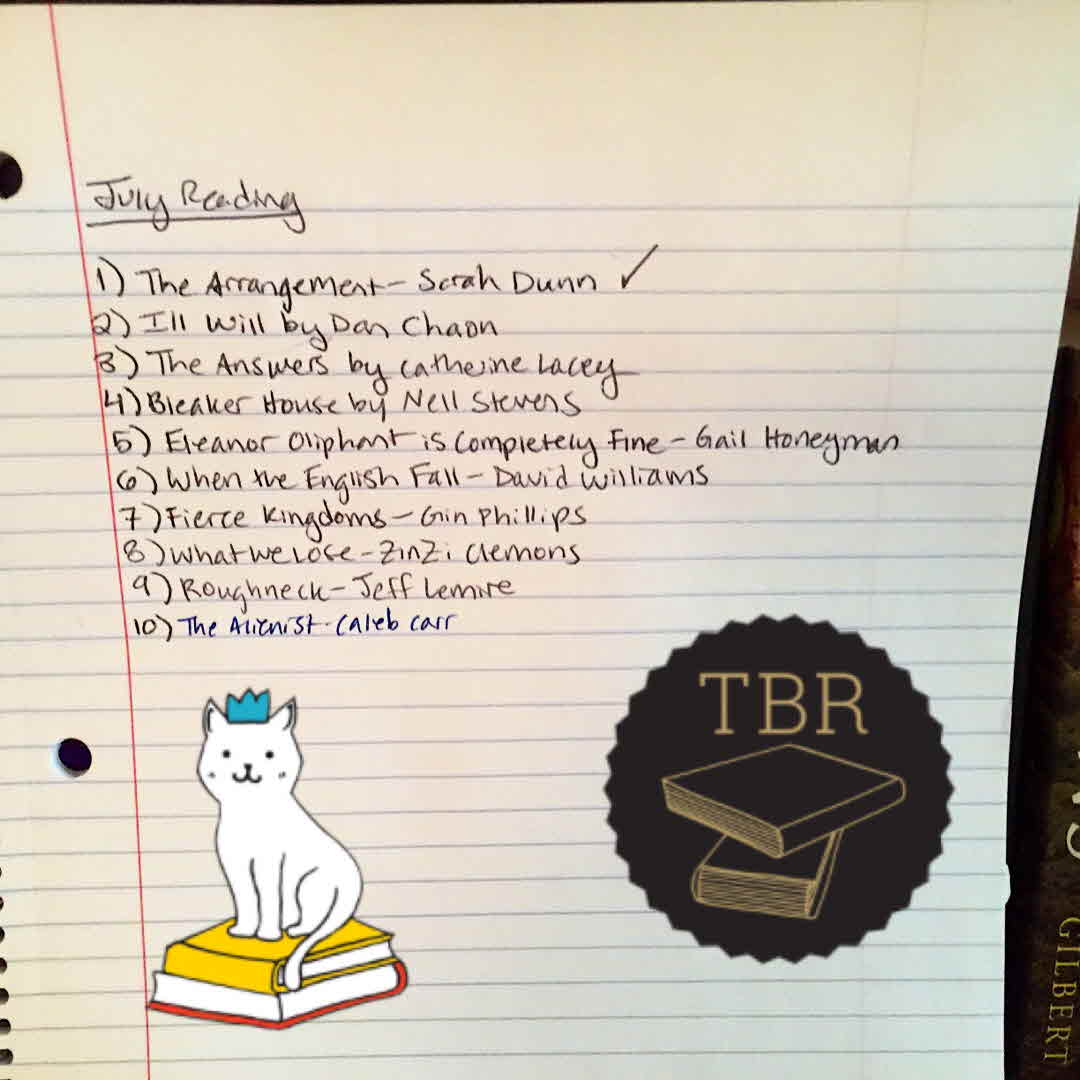 July Reading
1) The Arrangement - Sarah Dunn ✓
2) Ill Will by Dan Chaon
3) The Answers by Catherine Lacey
4) Bleaker House by Nell Stevens
5) Eleanor Oliphant is Completely Fine - Gail Honeyman
6) When the English Fall - David Williams
7) Fierce Kingdoms - Gin Phillips
8) What we lose - Zinzi Clemons
9) Roughneck - Jeff Lemire
10) The Alienist - Caleb Carr
TBR
GILBERT